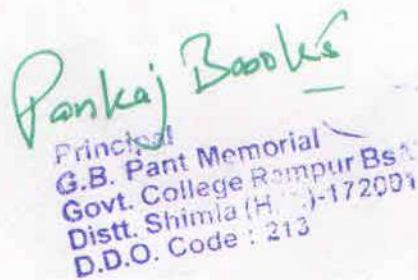 Pankaj
Principal
G.B. Pant Memorial
Govt. College Rampur Bs
Distt. Shimla (H. )-172001
D.D.O. Code : 213